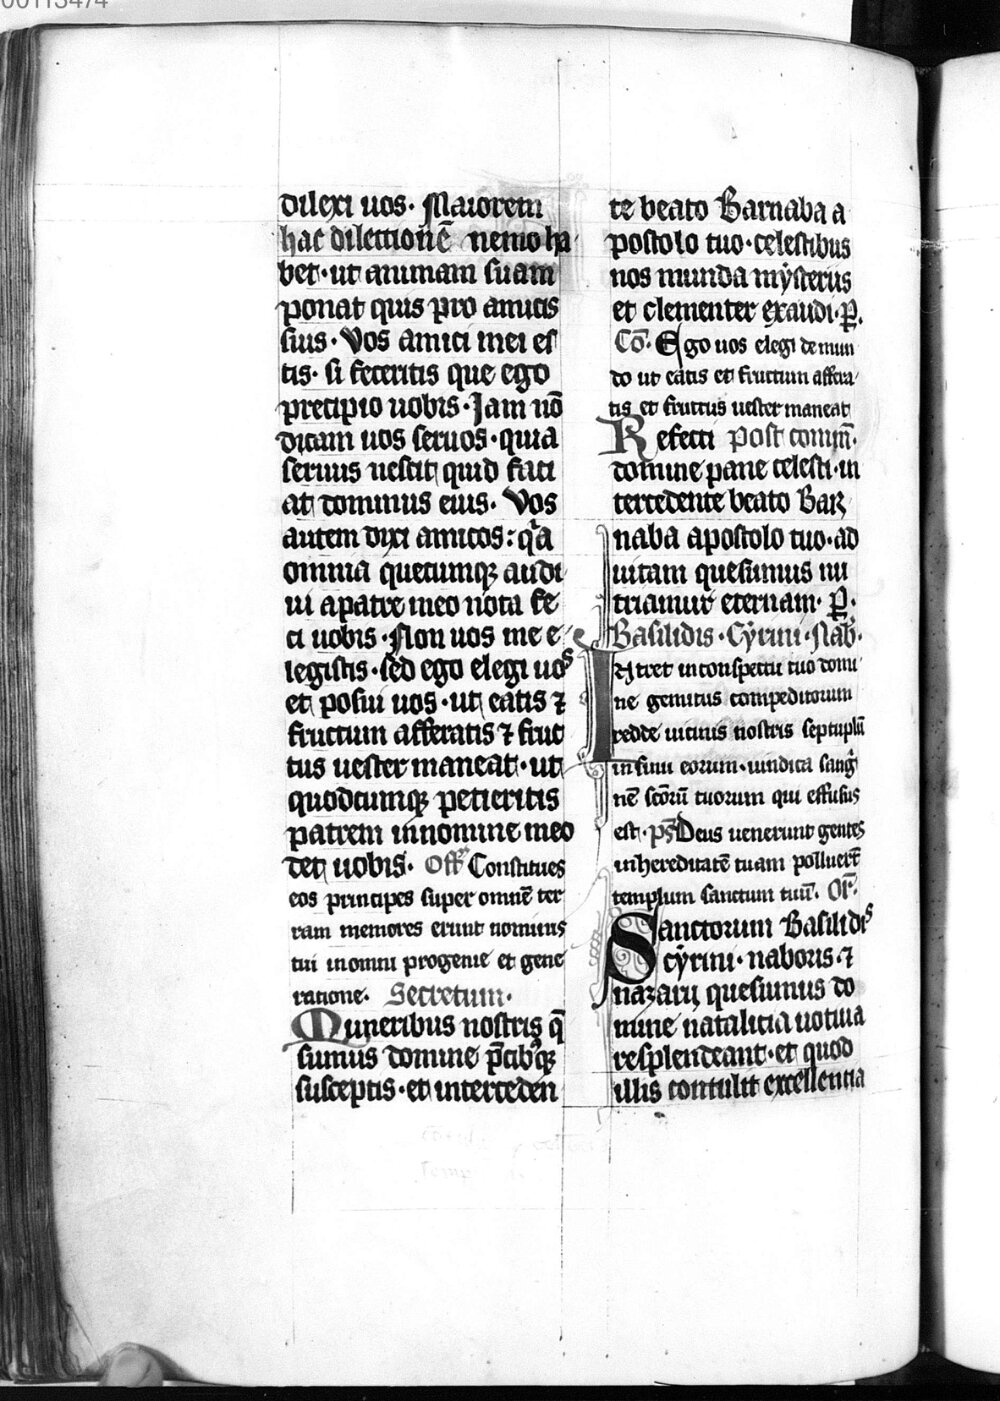 00113474
dilexi uos. Maiorem
hac dilectionē nemo ha
bet. ut animam suam
ponat quis pro amicis
suis. Vos amici mei es
tis. si feceritis que ego
precipio uobis. Iam nō
dicam uos seruos. quia
seruus nescit quid faci
at dominus eius. Vos
autem dixi amicos: qͣa
omnia quecumqꝫ audi
ui a patre meo nota fe
ci uobis. Non uos me e
legistis. sed ego elegi uos
et posui uos. ut eatis ⁊
fructum afferatis ⁊ fruc
tus uester maneat. ut
quodcumqꝫ petieritis
patrem in nomine meo
det uobis. Off Constitues
eos principes super omnē ter
ram memores erunt nominis
tui in omni progenie et gene
ratione. Secretum.
Muneribus nostris q̄
sumus domine p̄cibꝫqꝫ
susceptis. et interceden
te beato Barnaba a
postolo tuo. celestibus
nos munda mẏsteriis
et clementer exaudi. P.
Cō. Ego uos elegi de mun
do ut eatis et fructum affera
tis et fructus uester maneat
Refecti post comm̄.
domine pane celesti. in
tercedente beato Bar
naba apostolo tuo. ad
uitam quesumus nu
triamur eternam. P.
Basilidis. Cẏrini. Nab̄.
Intret in conspectu tuo domi
ne gemitus compeditorum
redde uicinis nostris septuplū
in sinu eorum. uindica sangͥ
nē sc̄orū tuorum qui effusus
est. ps̄ Deus uenerunt gentes
in hereditatē tuam polluert̄
templum sanctum tuū. Or̄.
Sanctorum Basilidis
cẏrini. naboris. ⁊
nazarii quesumus do
mine natalicia uotiua
resplendeant. et quod
illis contulit excellentia